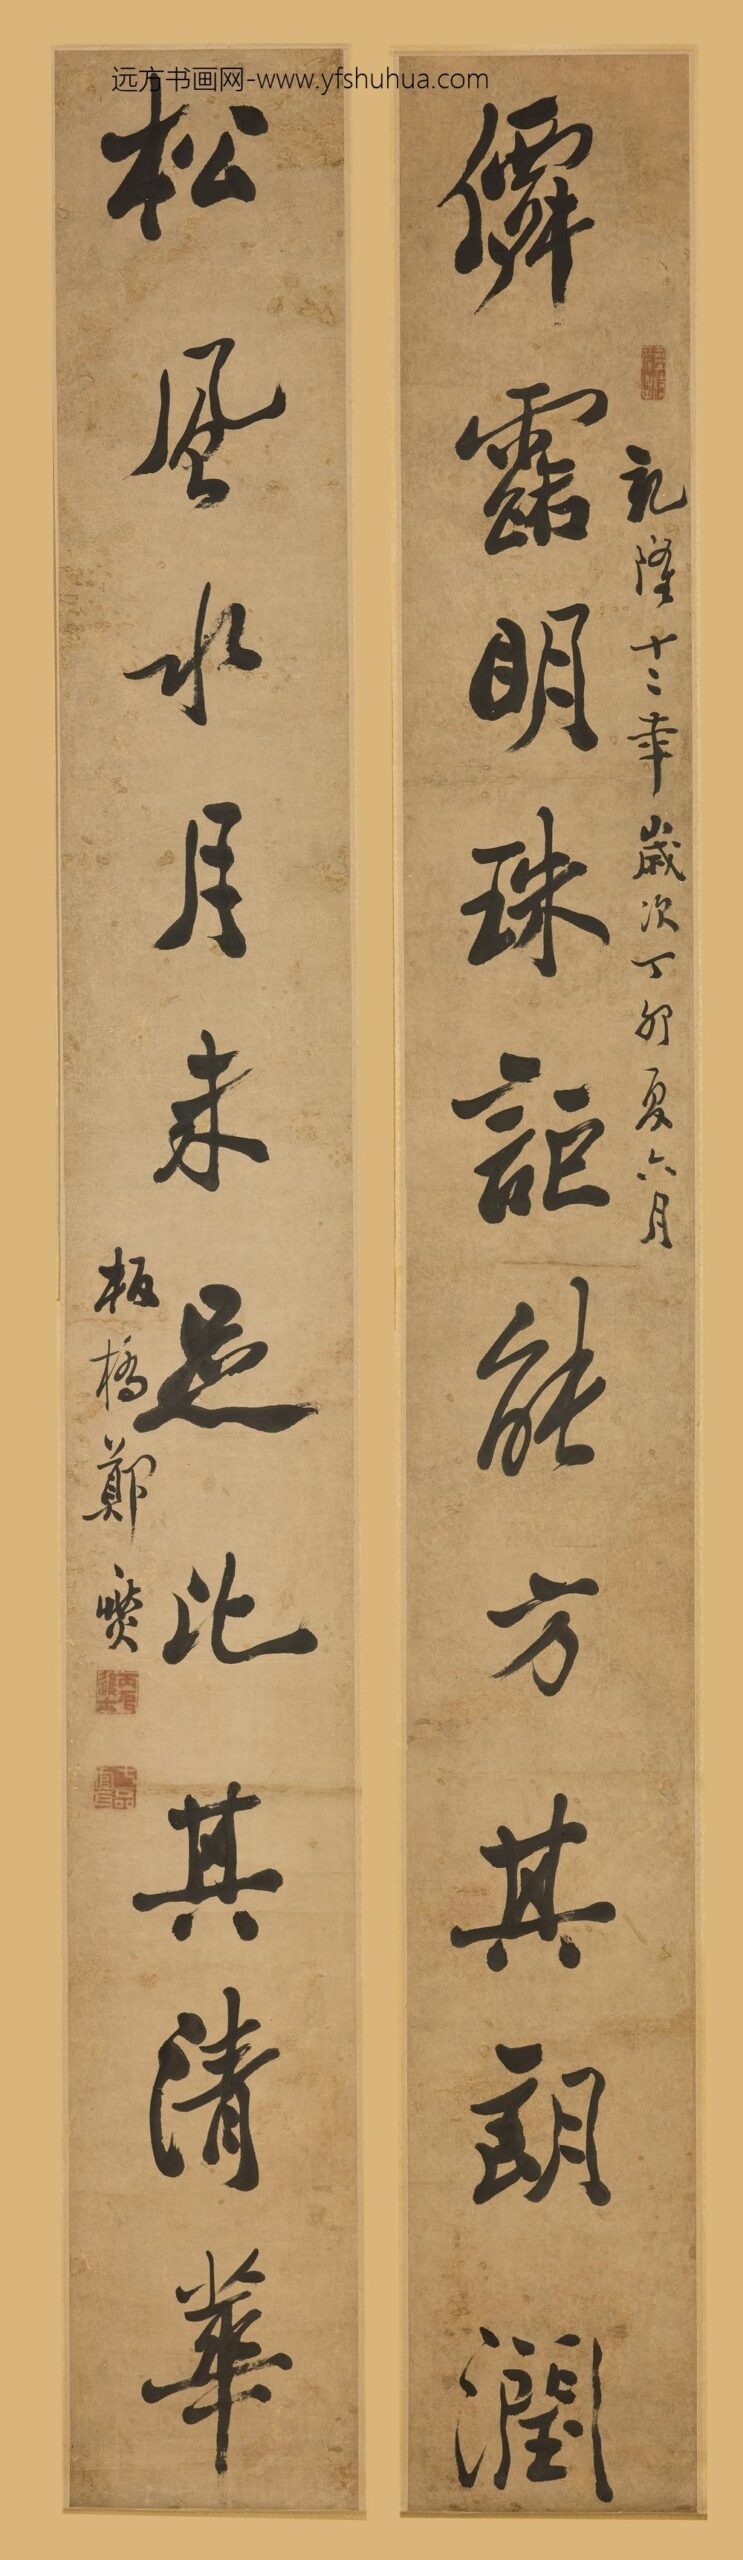 远方书画网-www.yfshuhua.com
乾隆十二年歲次丁卯夏六月
僊露明珠詎能方其朗潤
松風水月未足比其清華
板橋鄭燮
丙辰進士
七品官耳